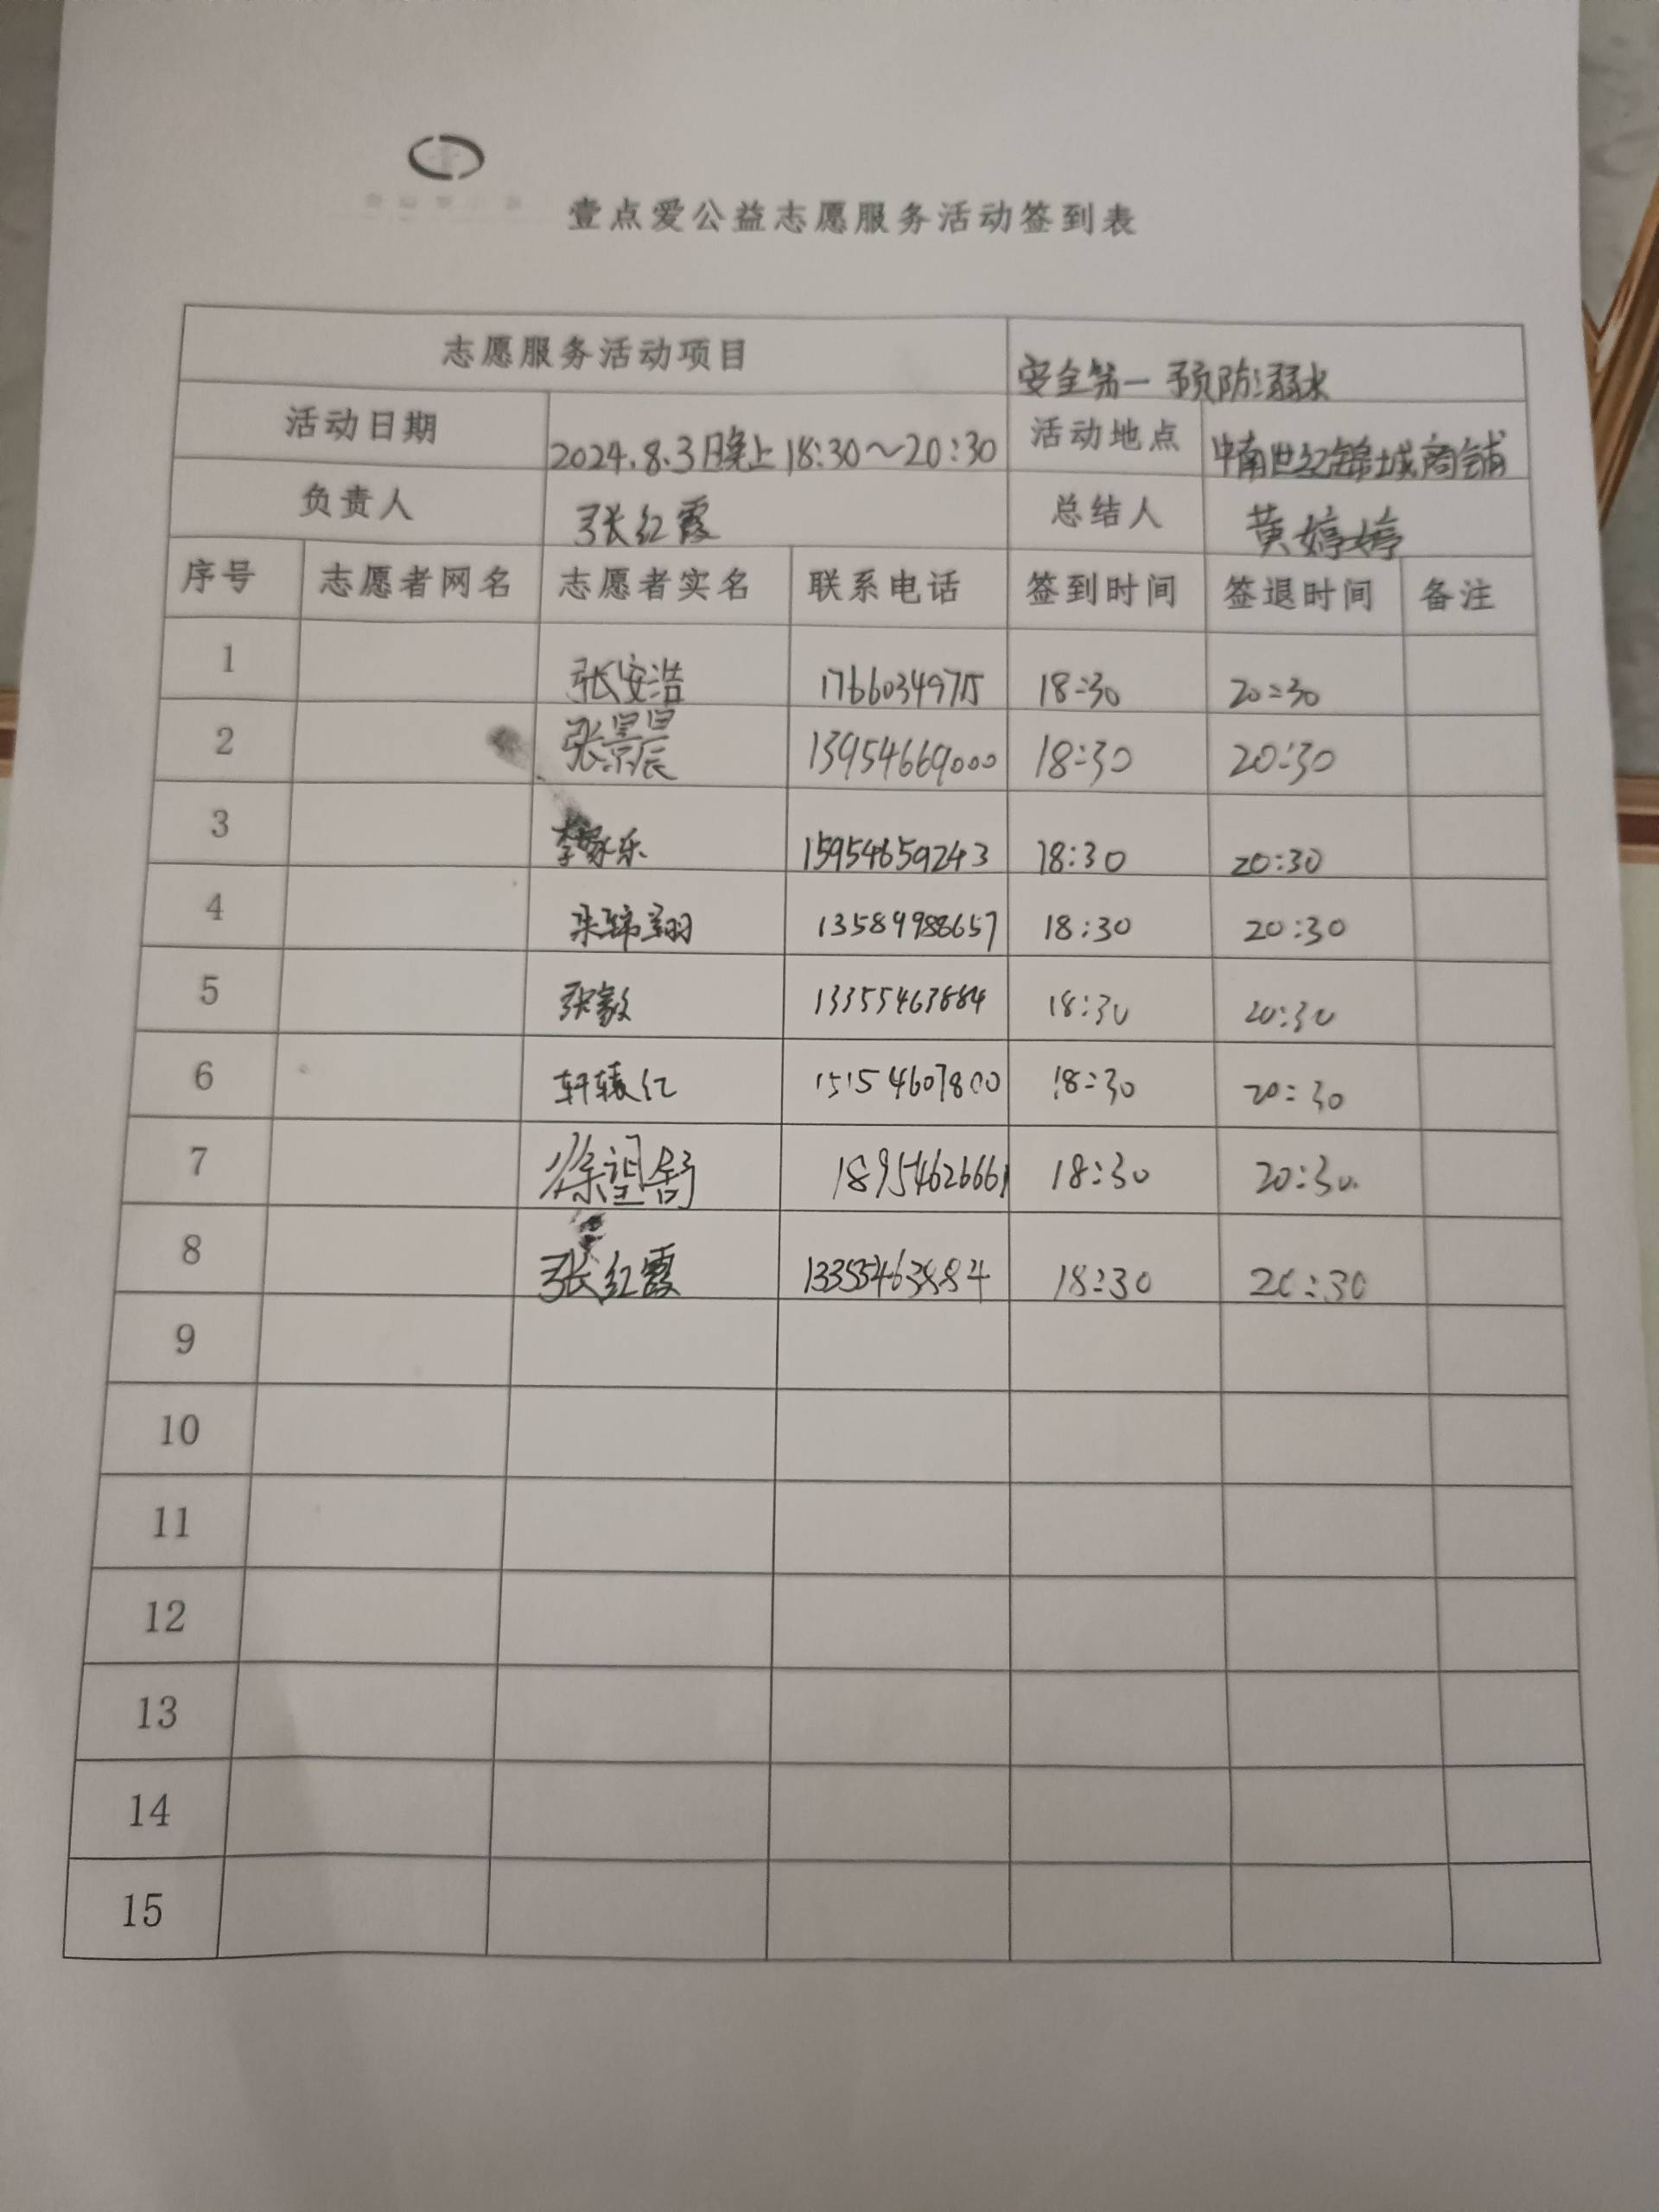 壹点爱公益志愿服务活动签到表
志愿服务活动项目 安全第一 预防溺水
活动日期 2024.8.3日晚上18:30~20:30 活动地点 中南世纪锦城商铺
负责人 张红霞 总结人 黄婷婷
序号 志愿者网名 志愿者实名 联系电话 签到时间 签退时间 备注
1 张安浩 17660349715 18:30 20:30
2 张景晨 13954669000 18:30 20:30
3 李家乐 15954659243 18:30 20:30
4 13589988657 18:30 20:30
5 张毅 13355463884 18:30 20:30
6 轩辕红 15154607800 18:30 20:30
7 徐望舒 18954626661 18:30 20:30
8 张红霞 13355463884 18:30 20:30
9
10
11
12
13
14
15